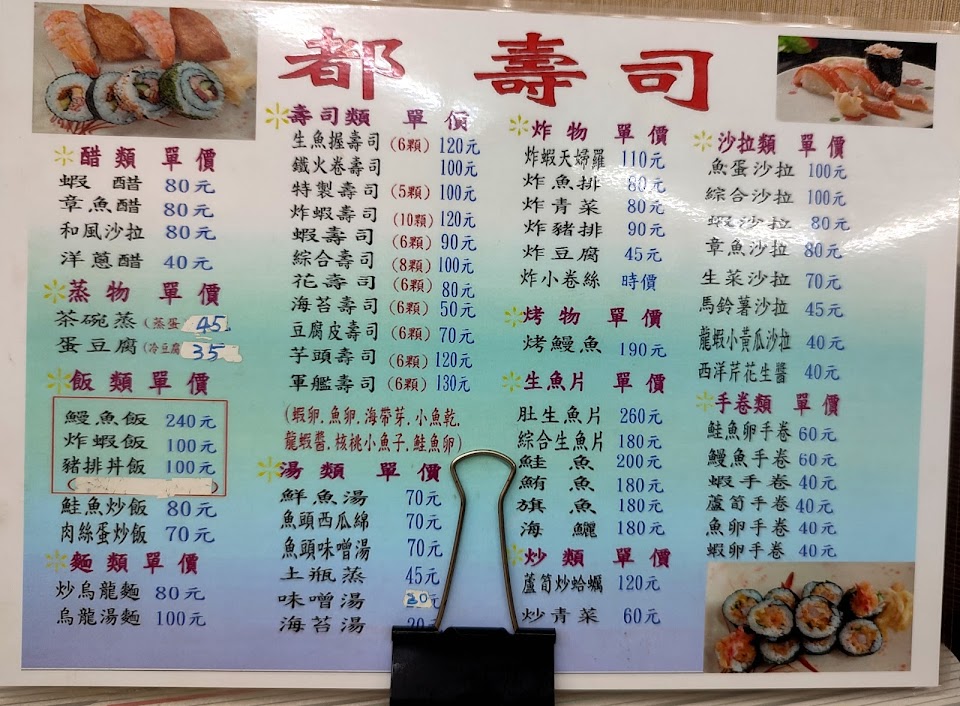 都壽司
醋類 單價
蝦醋 80元
章魚醋 80元
和風沙拉 80元
洋蔥醋 40元
蒸物 單價
茶碗蒸(蒸蛋 45
蛋豆腐(冷豆腐 35
飯類 單價
鰻魚飯 240元
炸蝦飯 100元
豬排丼飯 100元
鮭魚炒飯 80元
肉絲蛋炒飯 70元
麵類 單價
炒烏龍麵 80元
烏龍湯麵 100元
壽司類 單價
生魚握壽司 (6顆) 120元
鐵火卷壽司 100元
特製壽司 (5顆) 100元
炸蝦壽司 (10顆) 120元
蝦壽司 (6顆) 90元
綜合壽司 (8顆) 100元
花壽司 (6顆) 80元
海苔壽司 (6顆) 50元
豆腐皮壽司 (6顆) 70元
芋頭壽司 (6顆) 120元
軍艦壽司 (6顆) 130元
(蝦卵.魚卵.海帶芽.小魚乾.
龍蝦醬.核桃小魚子.鮭魚卵)
湯類 單價
鮮魚湯 70元
魚頭西瓜綿 70元
魚頭味噌湯 70元
土瓶蒸 45元
味噌湯 30元
海苔湯
炸物 單價
炸蝦天婦羅 110元
炸魚排 80元
炸青菜 80元
炸豬排 90元
炸豆腐 45元
炸小卷絲 時價
烤物 單價
烤鰻魚 190元
生魚片 單價
肚生魚片 260元
綜合生魚片 180元
鮭魚 200元
鮪魚 180元
旗魚 180元
海鱺 180元
炒類 單價
蘆筍炒蛤蠣 120元
炒青菜 60元
沙拉類 單價
魚蛋沙拉 100元
綜合沙拉 100元
蝦沙拉 80元
章魚沙拉 80元
生菜沙拉 70元
馬鈴薯沙拉 45元
龍蝦小黃瓜沙拉 40元
西洋芹花生醬 40元
手卷類 單價
鮭魚卵手卷 60元
鰻魚手卷 60元
蝦手卷 40元
蘆筍手卷 40元
魚卵手卷 40元
蝦卵手卷 40元